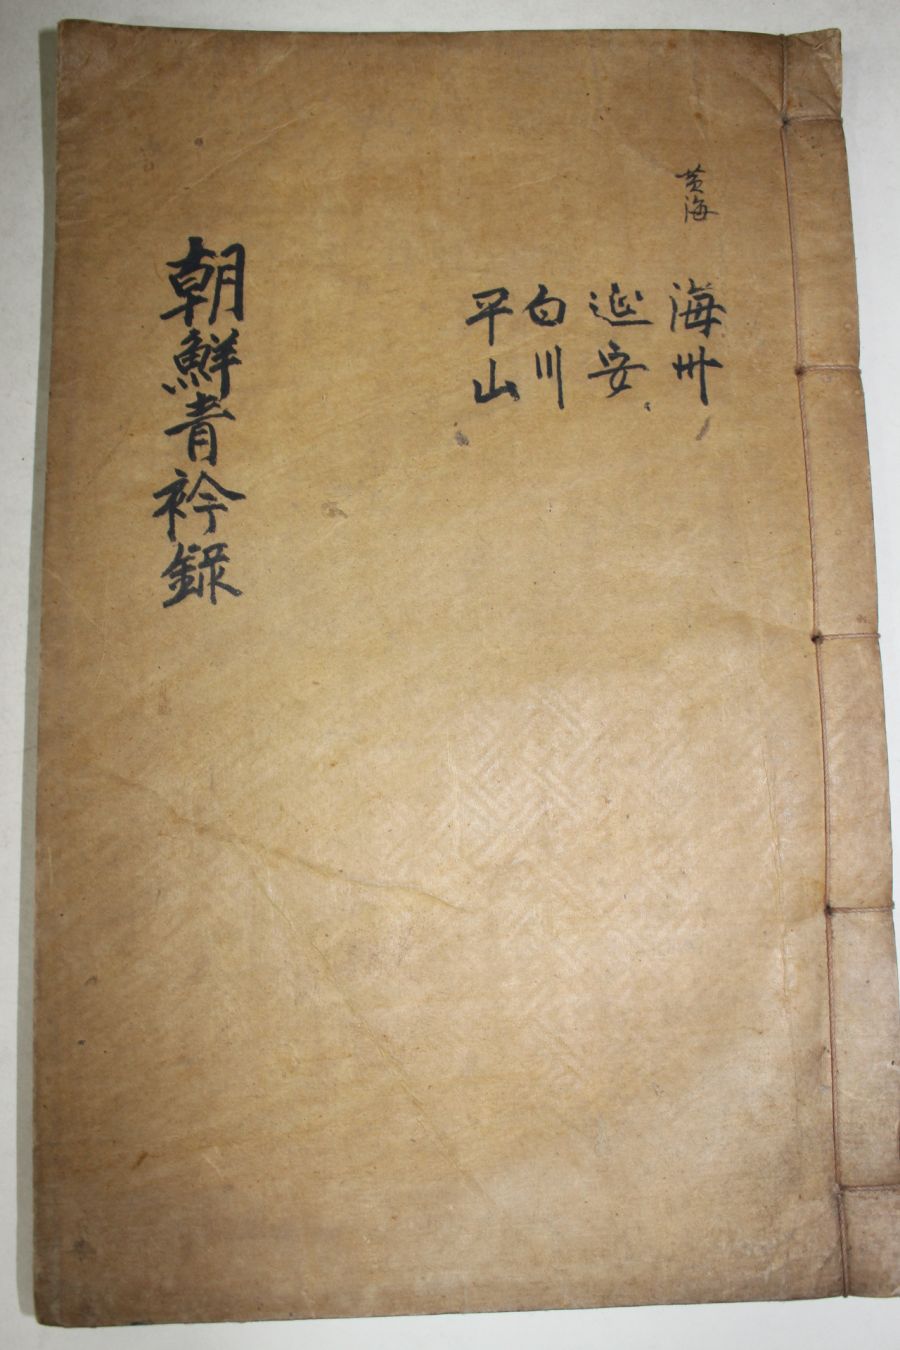 黃海
海州
延安
白川
平山
朝鮮青衿錄